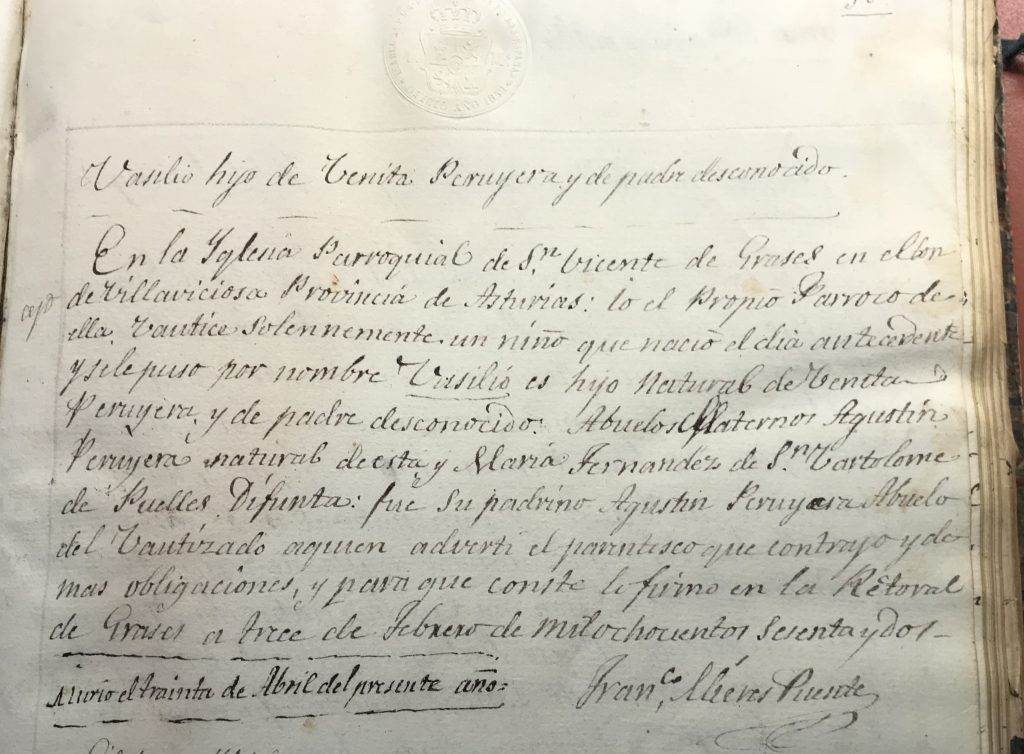 Vasilio hijo de Venita Peruyera y de padre desconocido.
En la Yglesia Parroquial de S.n Vicente de Grases en el Con
de Villaviciosa Provincia de Asturias: Io el Propio Parroco de
ella, Vautice Solennemente un niño que nacio el dia antecedente
y sele puso por nombre Vasilio es hijo Natural de Venita
Peruyera, y de padre desconocido: Abuelos Maternos Agustin
Peruyera natural de esta y Maria Fernandez de S.n Vartolome
de Puelles Difunta: fue Su padrino Agustin Peruyera Abuelo
del Vautizado aquien adverti el parentesco que contrajo y de
mas obligaciones, y para que conste lo firmo en la Retoral
de Grases a trece de Febrero de mil ochocientos Sesenta y dos
Murio el trainta de Abril del presente año=
Fran.co Miéres Puente